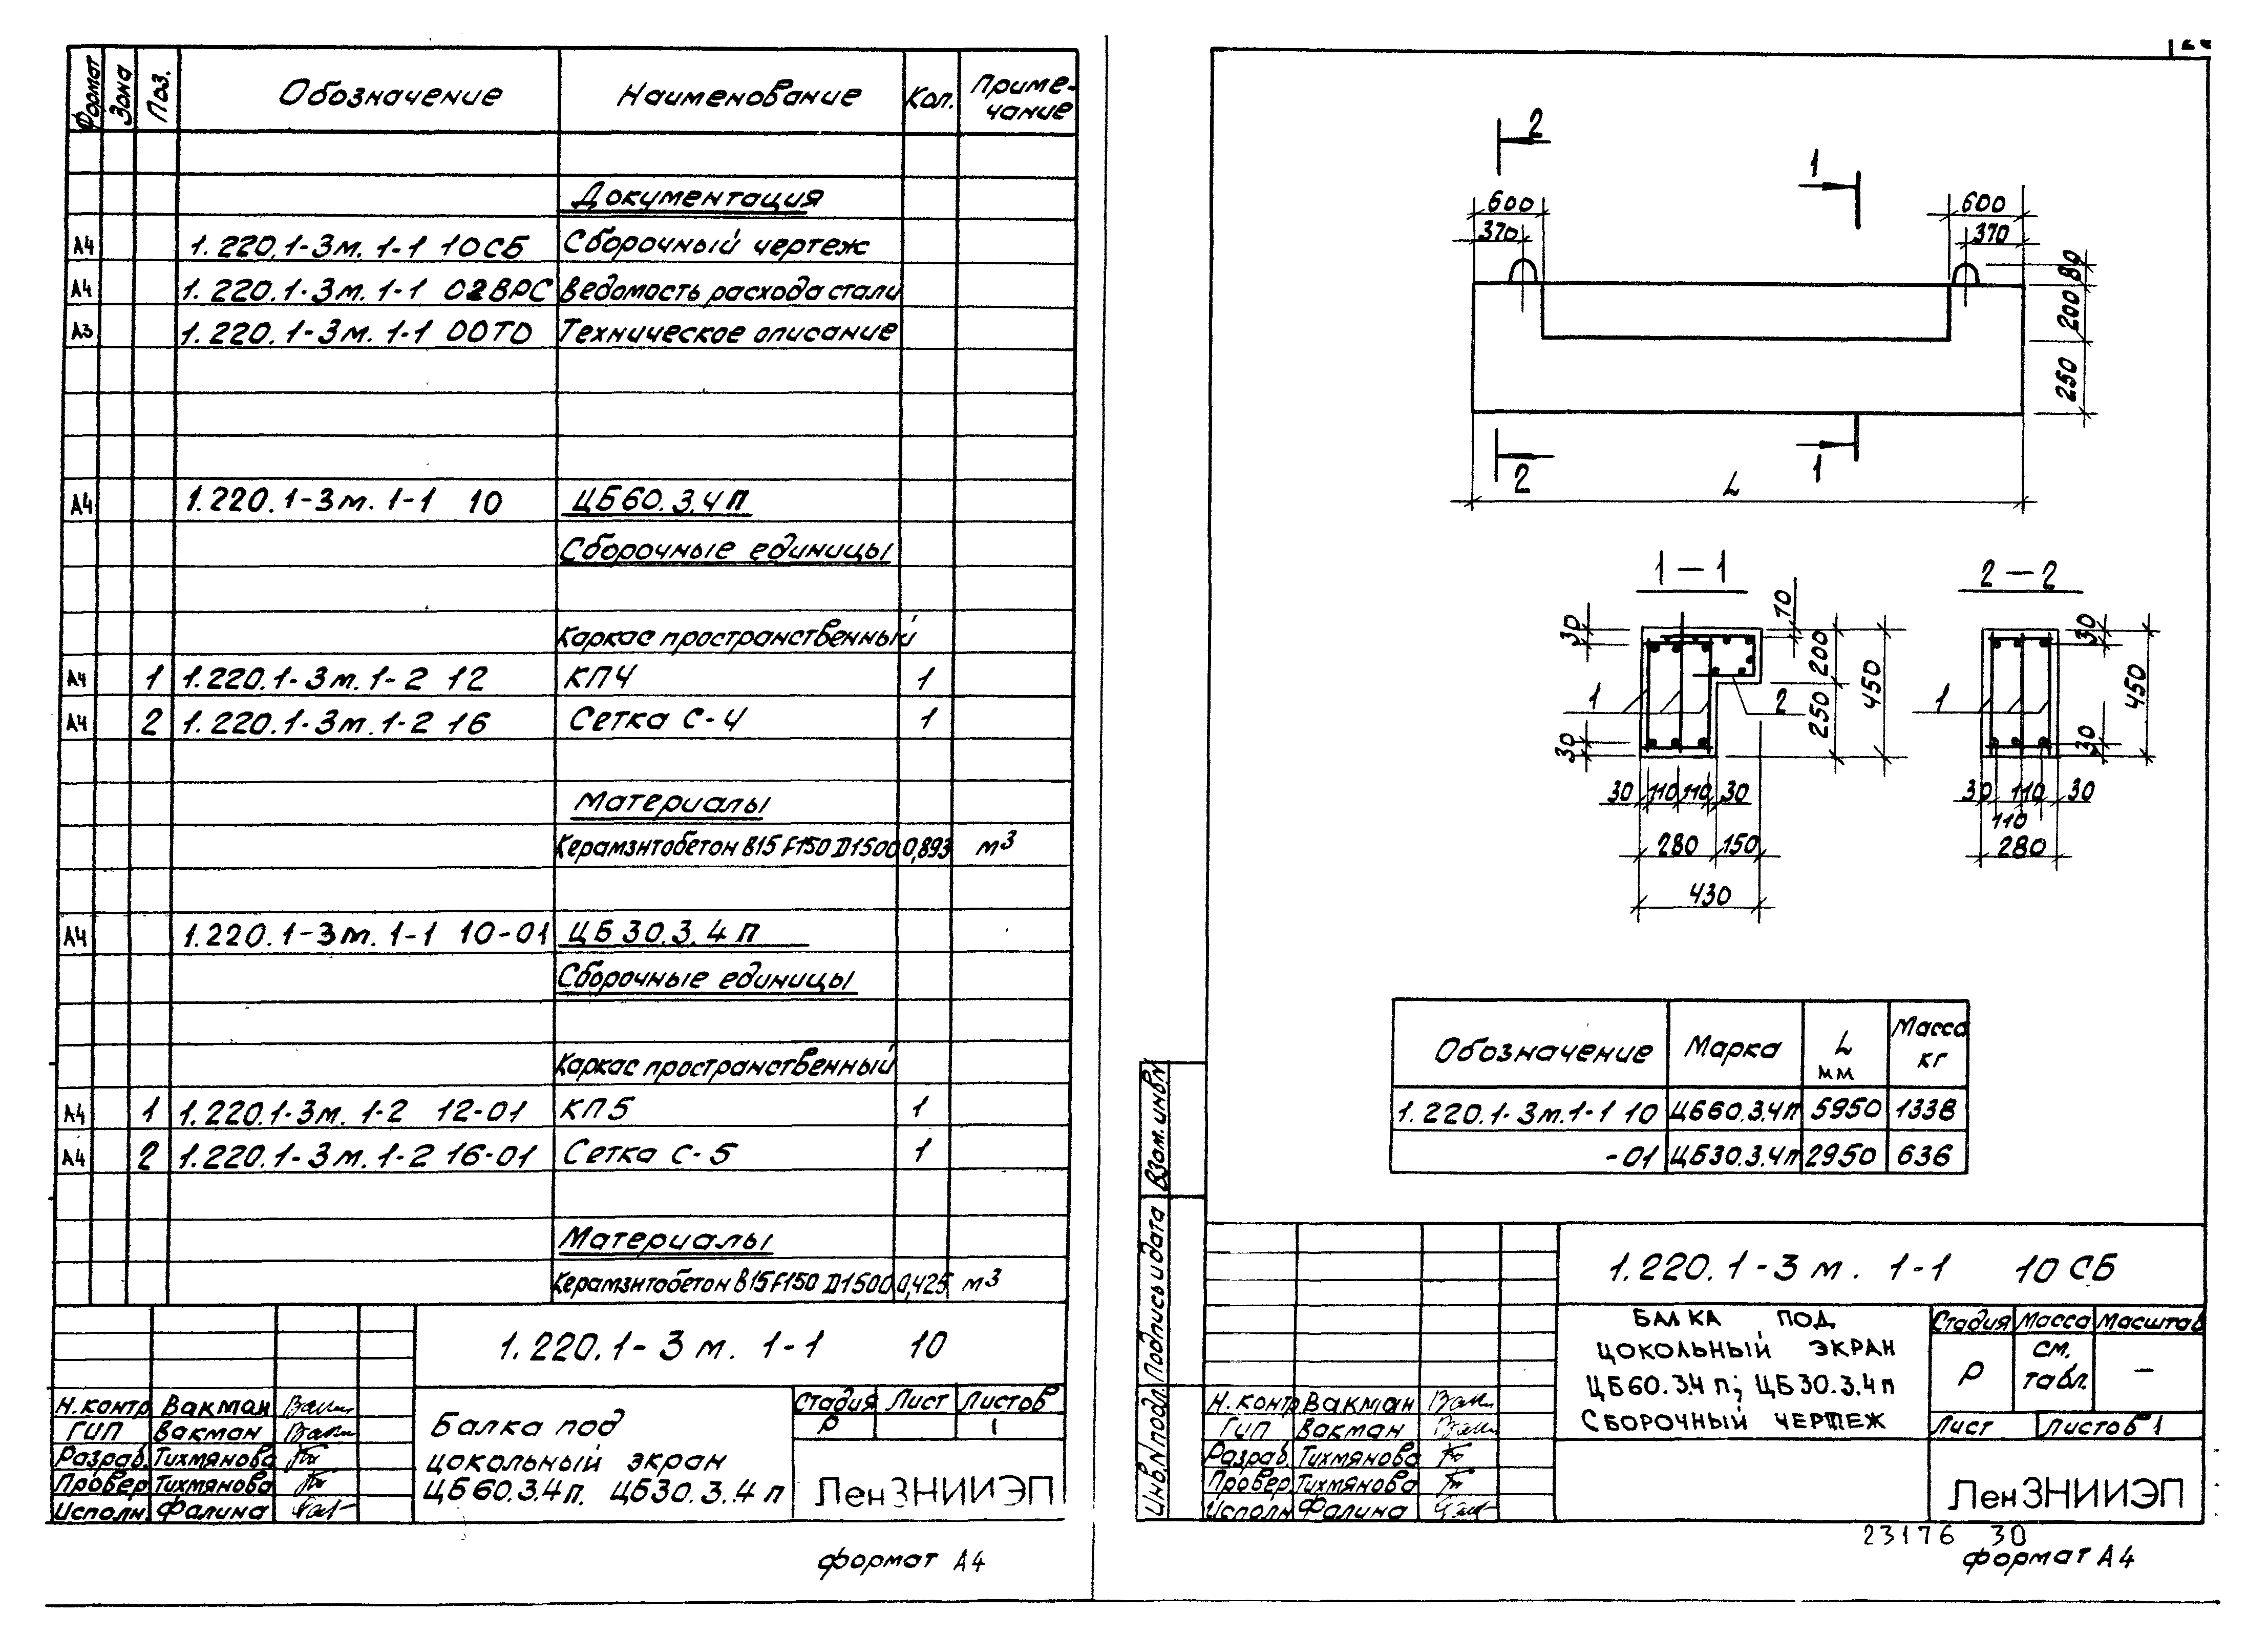 Формат Зона Поз. Обозначение Наименование Кол. Приме-
чание
Документация
А4 1.220.1-3м. 1-1 10СБ Сборочный чертеж
А4 1.220.1-3м. 1-1 02ВРС Ведомость расхода стали
А3 1.220.1-3м. 1-1 00ТО Техническое описание
А4 1.220.1-3м. 1-1 10 ЦБ60.3.4П
Сборочные единицы
Каркас пространственный
А4 1 1.220.1-3м.1-2 12 КП4 1
А4 2 1.220.1-3м.1-2 16 Сетка С-4 1
Материалы
Керамзитобетон В15 F150 D1500 0,893 м3
А4 1.220.1-3м.1-1 10-01 ЦБ30.3.4П
Сборочные единицы
Каркас пространственный
А4 1 1.220.1-3м. 1-2 12-01 КП5 1
А4 2 1.220.1-3м.1-2 16-01 Сетка С-5 1
Материалы
Керамзитобетон В15 F150 D1500 0,425 м3
1.220.1-3м. 1-1 10
Н.контр Вакман
ГИП Вакман
Разраб. Тихмянова
Провер Тихмянова
Исполн. Фалина
Балка под
цокольный экран
ЦБ60.3.4п. ЦБ30.3.4п
Стадия Лист Листов
Р 1
ЛенЗНИИЭП
формат А4
2
1
600
600
370
370
80
200
250
2
1
L
1-1
2-2
30
10
200
450
250
1
2
30
30 110 110 30
280 150
430
30
450
1
30
30 110 30
110
280
Обозначение Марка L
мм Масса
кг
1.220.1-3м.1-1 10 ЦБ60.3.4п 5950 1338
-01 ЦБ30.3.4п 2950 636
Взам.инв.№
Подпись и дата
Инв.№подл.
1.220.1-3м. 1-1 10СБ
Балка под
цокольный экран
ЦБ60.3.4п; ЦБ30.3.4п
Сборочный чертеж
Стадия Масса Масштаб
Р см.
табл. —
Лист Листов 1
Н.контр Вакман
ГИП Вакман
Разраб. Тихмянова
Провер. Тихмянова
Исполн. Фалина
ЛенЗНИИЭП
23176 30
формат А4